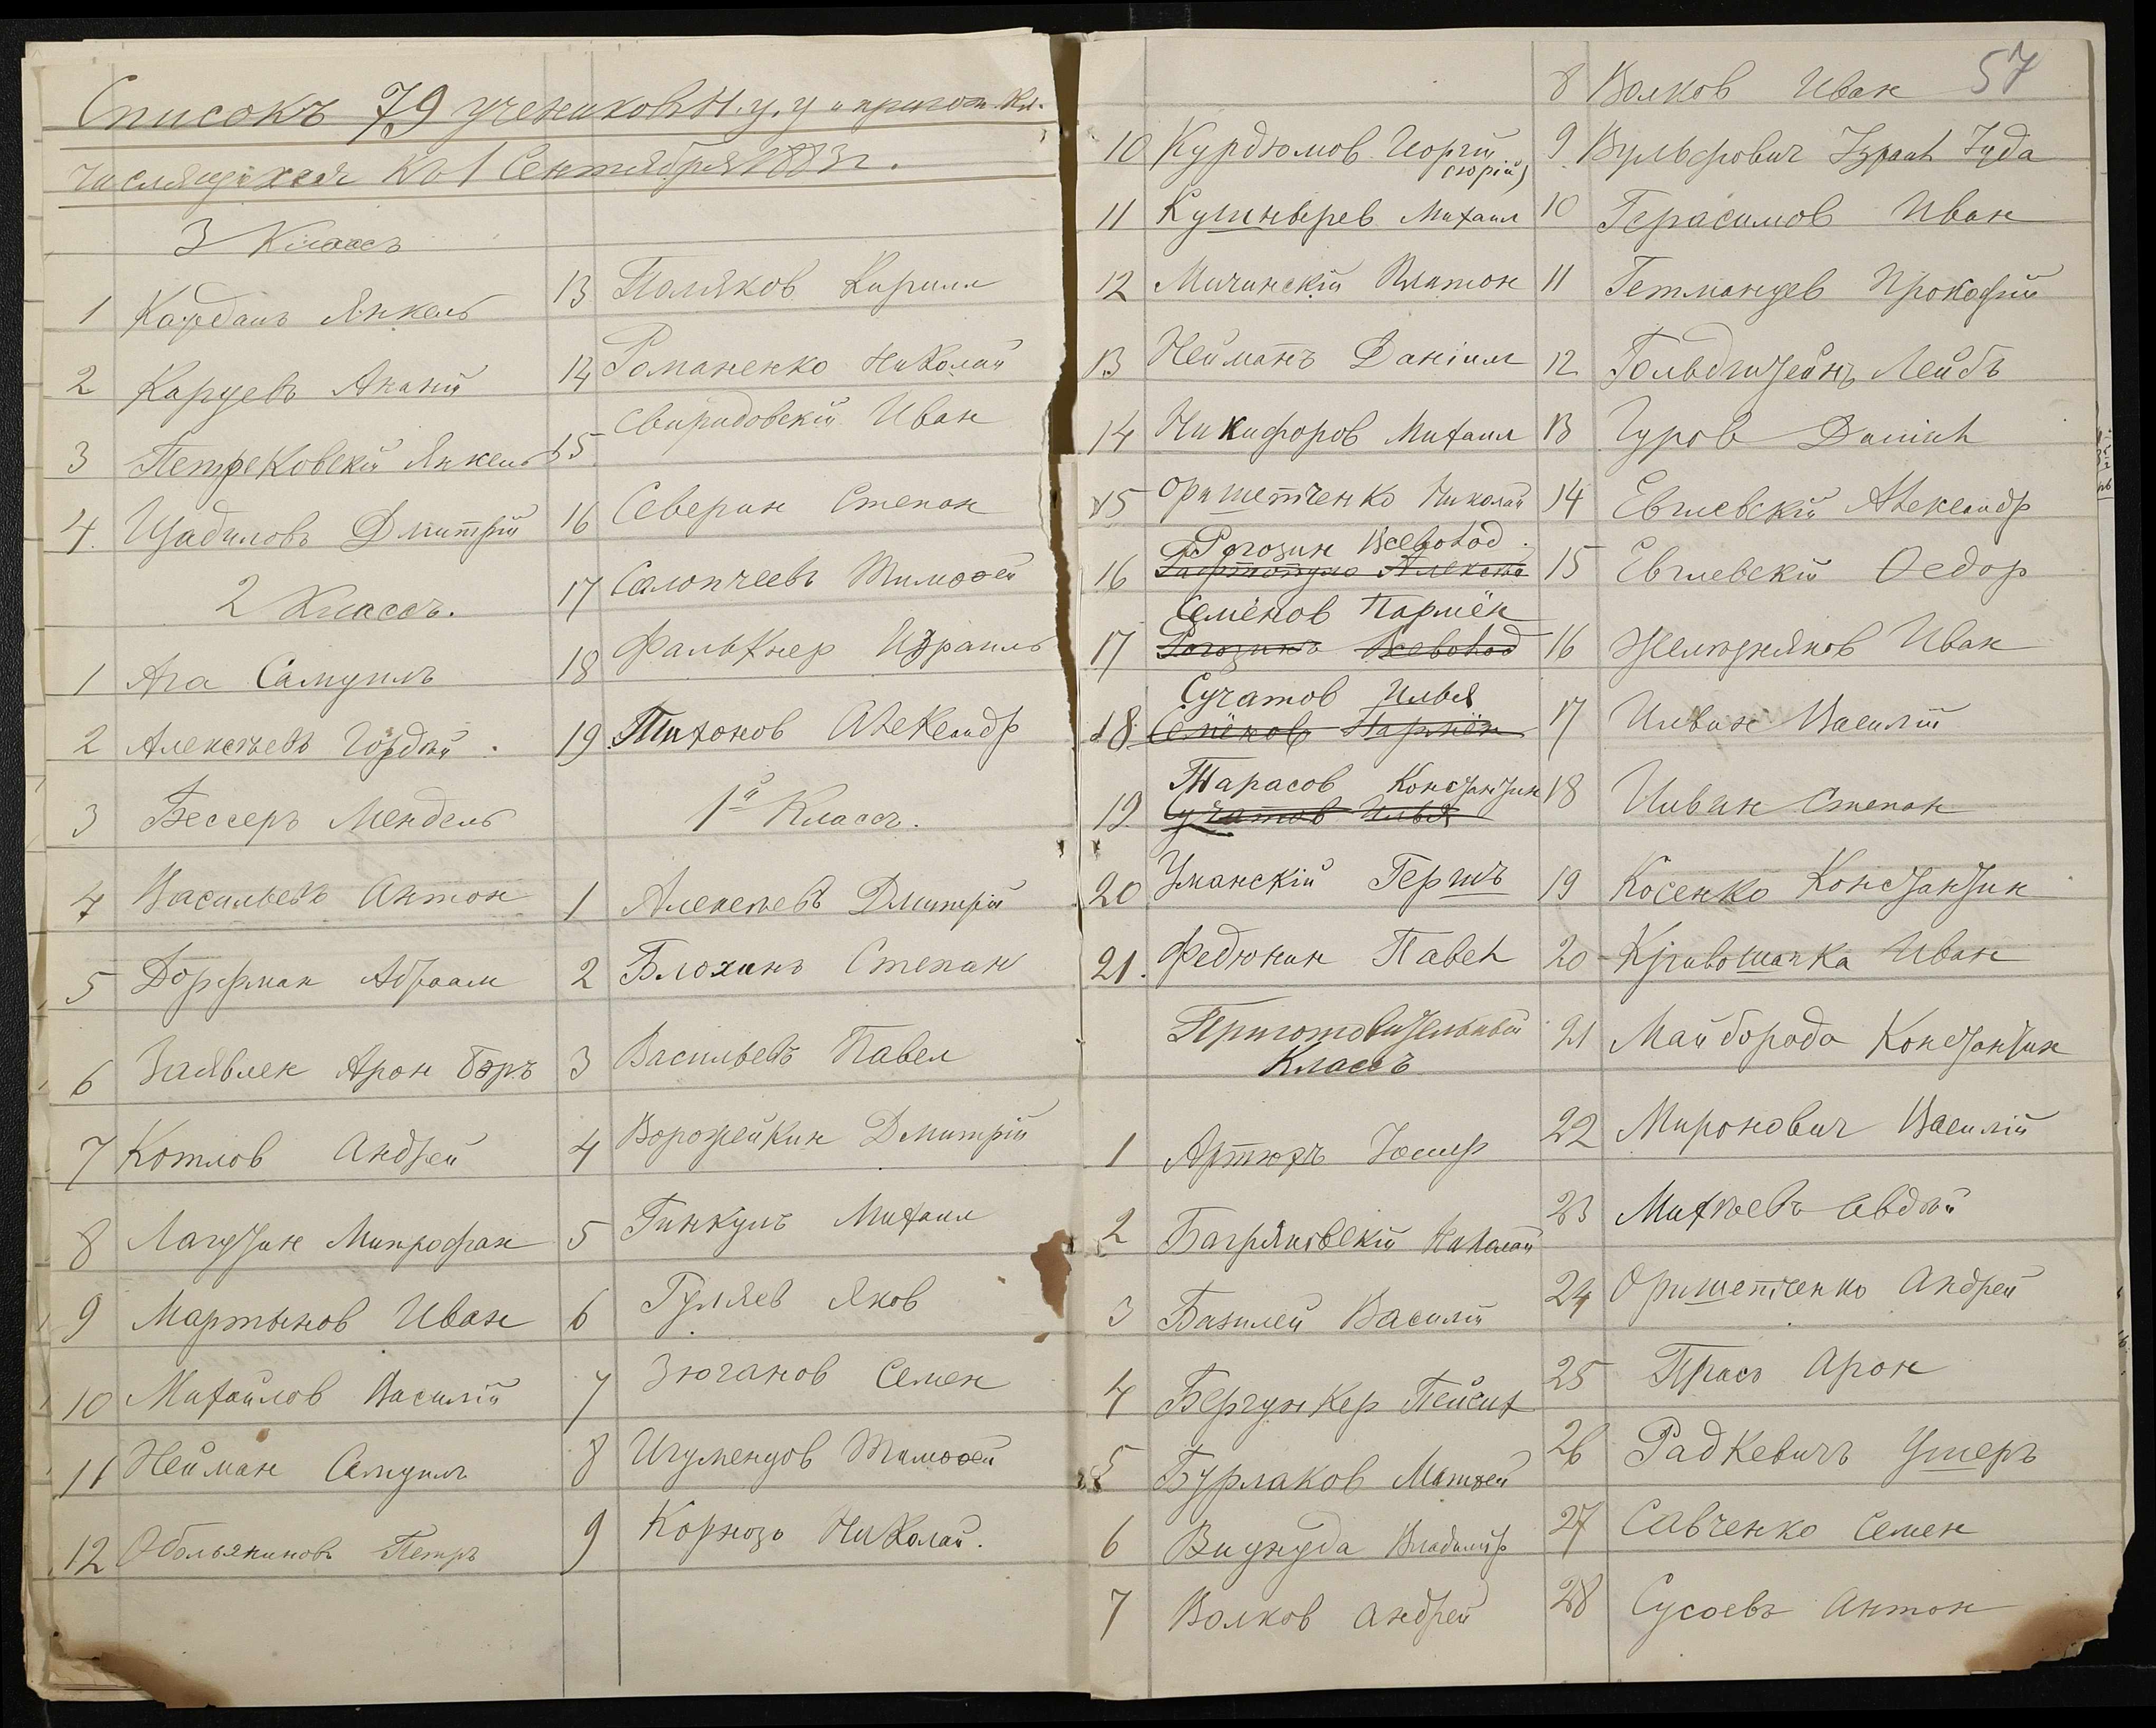 Списокъ 79 учениковъ Н. у. у и пригот. Кл.
числящихся Ко 1 Сентября 1883 г.
3 Классъ
1 Кардашъ Янкель
2 Карцевъ Ананій
3 Петрековскій Янкель
4. Щадиловъ Дмитрій
2 Классъ.
1 Ага Самуилъ
2 Алексѣевъ Гордѣй.
3 Бессеръ Мендель
4 Васильевъ Антон
5 Дорфман Абраам
6 Заявлен Арон Бэръ
7 Котлов Андрей
8 Лагутин Митрофан
9 Мартынов Иван
10 Михайлов Василій
11 Нейман Самуилъ
12 Обольяниновъ Петръ
13 Поляков Кирилл
14 Романенко Николай
15 Свиридовскій Иван
16 Северин Степан
17 Салопчеевъ Тимоѳей
18 Фалькнер Израиль
19 Тихонов Александр
1й Классъ.
1 Алексѣевъ Дмитрій
2 Блохинъ Степан
3 Васильевъ Павел
4 Ворожейкин Дмитрій
5 Гинкулъ Михаил
6 Гуляев Яков
7 Зюганов Семен
8 Игуменцов Тимоѳей
9 Корнюзо Николай.
57
10 Курдюмов Георгій
(Юрій)
11 Кушнырев Михаил
12 Мичинскій Платон
13 Нейманъ Даніил
14 Никифоров Михаил
15 Оришетченко Николай
Рогозин Всеволод.
16
Семёнов Пармён
17 Рогозинъ Всеволод
Сучатов Илья
18 Семёнов Пармён
Тарасов Константин
19 Сучатов Илья
20 Уманскій Гершъ
21. Федюнин Павел
Приготовительный
Классъ
1 Артюхъ Іосиф
2 Багряновскій Николай
3 Базилей Василій
4 Бергункер Пейсих
5 Бурлаков Матвей
6 Вицнуда Владимір
7 Волков Андрей
8 Волков Иван
9 Вульфович Израил Іуда
10 Герасимов Иван
11 Гетманцев Прокофій
12 Гольдштейнъ Лейбъ
13 Гуров Даниил
14 Евгиевскій Александр
15 Евгиевскій Ѳедор
16 Желѣзняков Иван
17 Ильин Василій
18 Ильин Степан
19 Косенко Константин
20 Кривошапка Иван
21 Майборода Константин
22 Миронович Василій
23 Михѣевъ Авдѣй
24 Оришетченко Андрей
25 Прасъ Арон
26 Радкевичъ Ушеръ
27 Савченко Семен
28 Сусоевъ Антон